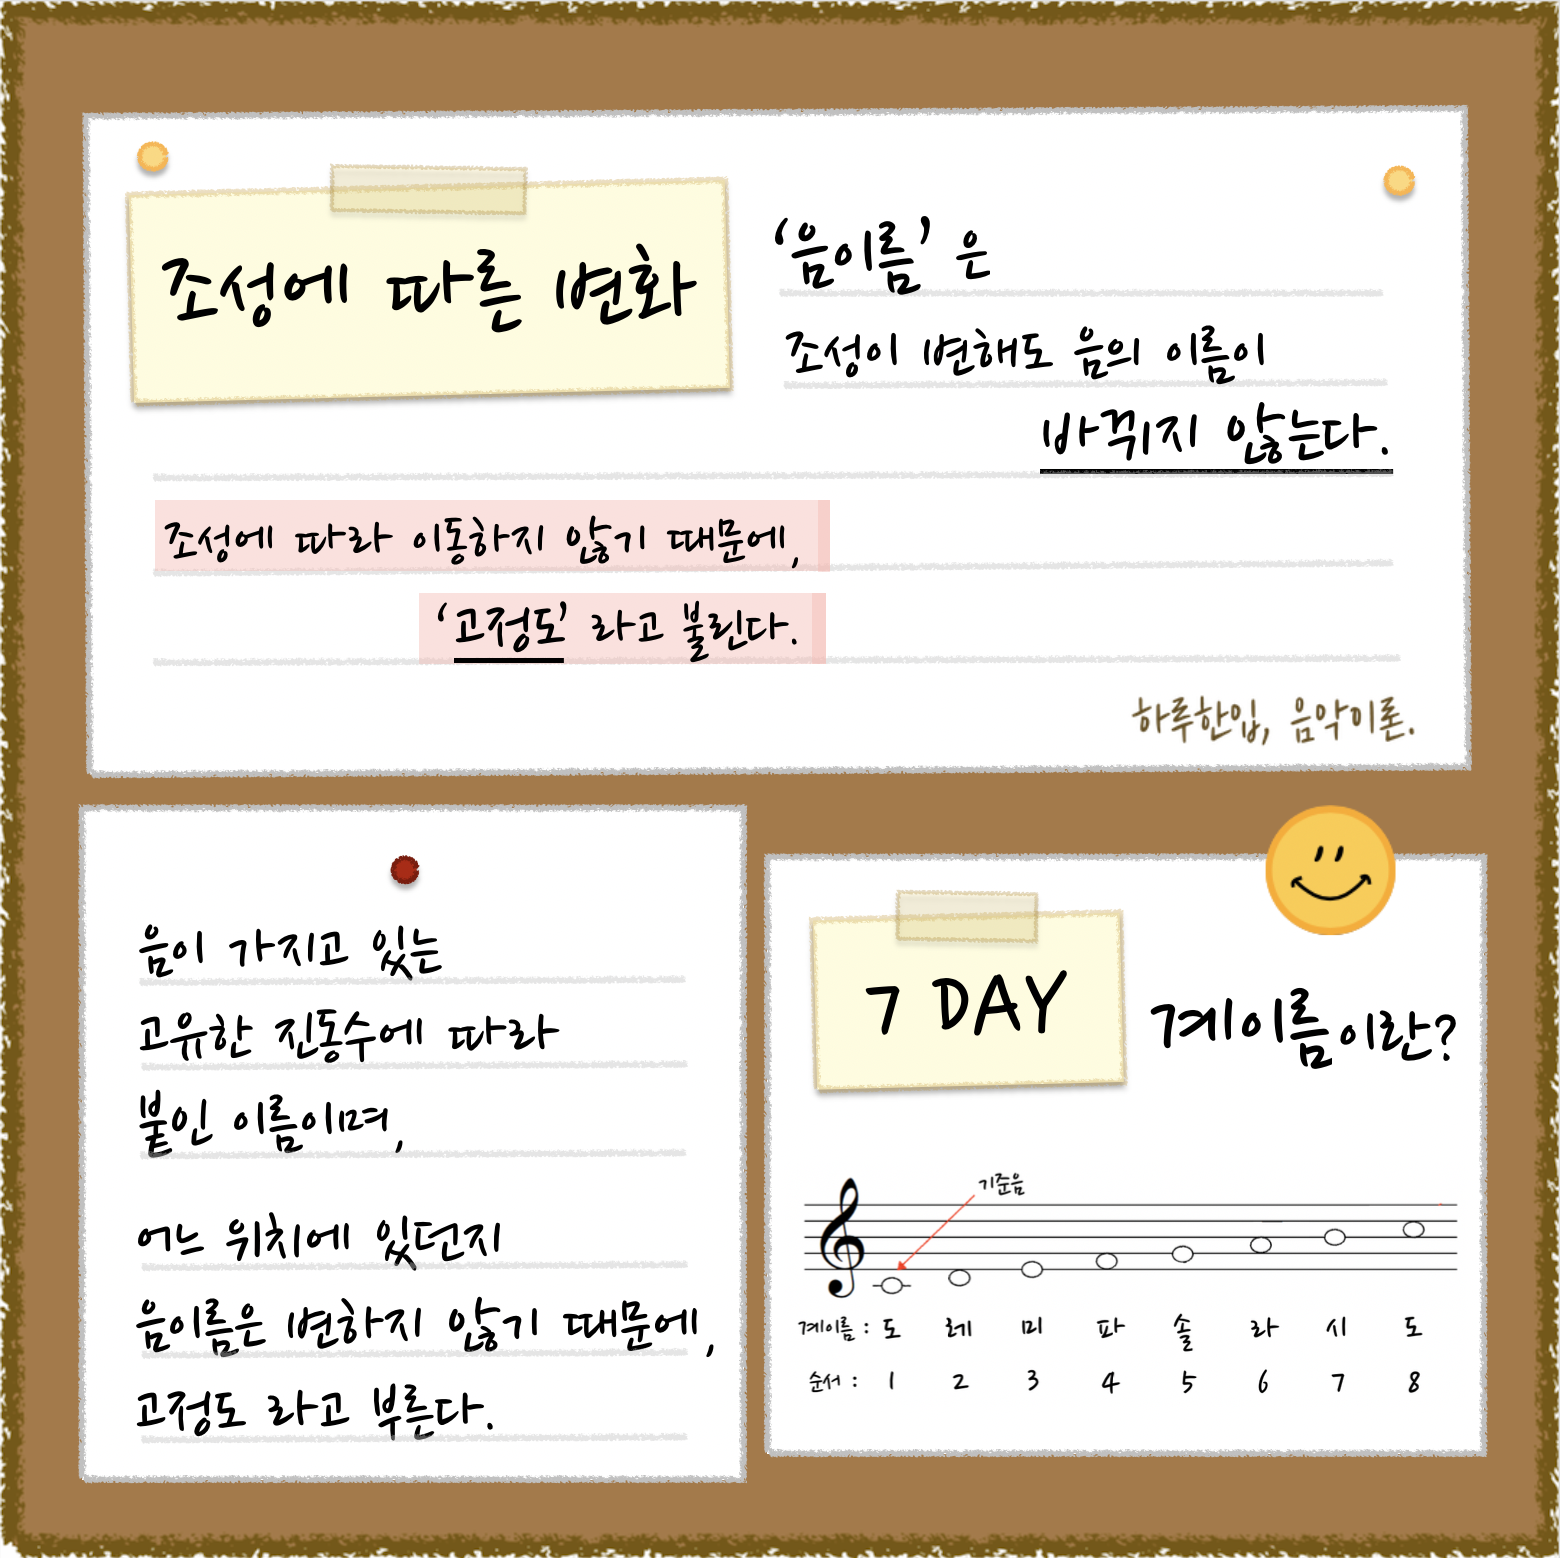 조성에 따른 변화
‘음이름’은
조성이 변해도 음의 이름이
바뀌지 않는다.
조성에 따라 이동하지 않기 때문에,
‘고정도’ 라고 불린다.
하루한입, 음악이론.
음이 가지고 있는
고유한 진동수에 따라
붙인 이름이며,
어느 위치에 있던지
음이름은 변하지 않기 때문에,
고정도 라고 부른다.
7 DAY
계이름이란?
기준음
계이름 : 도 레 미 파 솔 라 시 도
순서 : 1 2 3 4 5 6 7 8